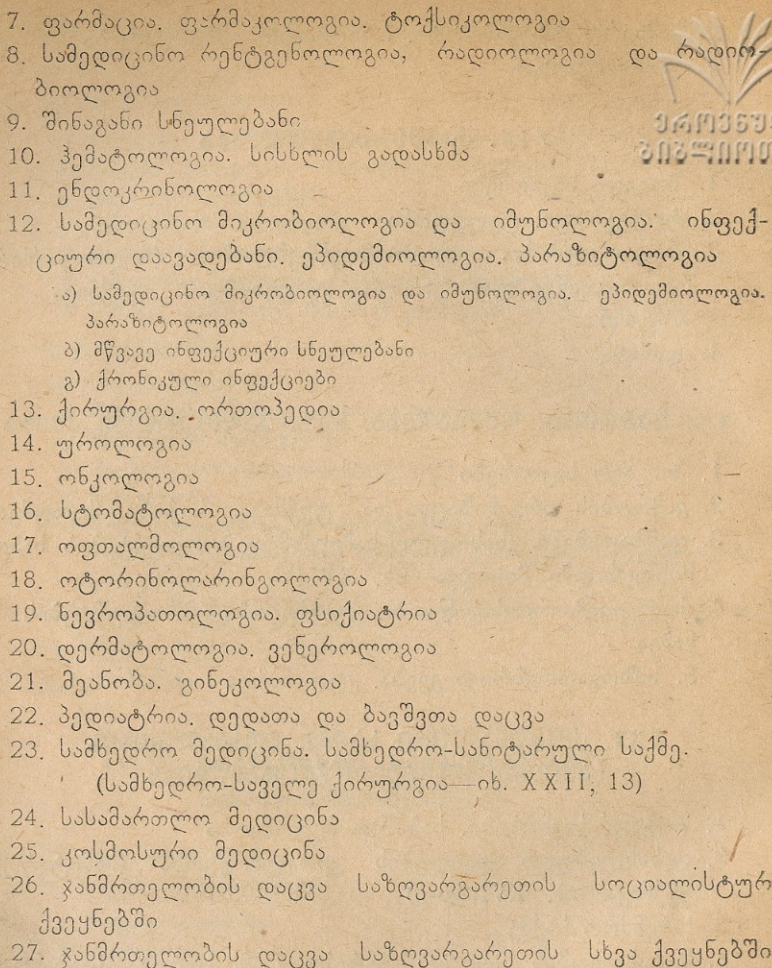 7. ფარმაცია. ფარმაკოლოგია. ტოქსიკოლოგია
8. სამედიცინო რენტგენოლოგია, რადიოლოგია და რადიო-
ბიოლოგია
9. შინაგანი სნეულებანი
10. ჰემატოლოგია. სისხლის გადასხმა
11. ენდოკრინოლოგია
12. სამედიცინო მიკრობიოლოგია და იმუნოლოგია. ინფექ-
ციური დაავადებანი. ეპიდემიოლოგია. პარაზიტოლოგია
ა) სამედიცინო მიკრობიოლოგია და იმუნოლოგია. ეპიდემიოლოგია.
პარაზიტოლოგია
ბ) მწვავე ინფექციური სნეულებანი
გ) ქრონიკული ინფექციები
13. ქირურგია. ორთოპედია
14. უროლოგია
15. ონკოლოგია
16. სტომატოლოგია
17. ოფთალმოლოგია
18. ოტორინოლარინგოლოგია
19. ნევროპათოლოგია. ფსიქიატრია
20. დერმატოლოგია. ვენეროლოგია
21. მეანობა. გინეკოლოგია
22. პედიატრია. დედათა და ბავშვთა დაცვა
23. სამხედრო მედიცინა. სამხედრო-სანიტარული საქმე.
(სამხედრო-საველე ქირურგია—იხ. XXII, 13)
24. სასამართლო მედიცინა
25. კოსმოსური მედიცინა
26. ჯანმრთელობის დაცვა საზღვარგარეთის სოციალისტურ
ქვეყნებში
27. ჯანმრთელობის დაცვა საზღვარგარეთის სხვა ქვეყნებში